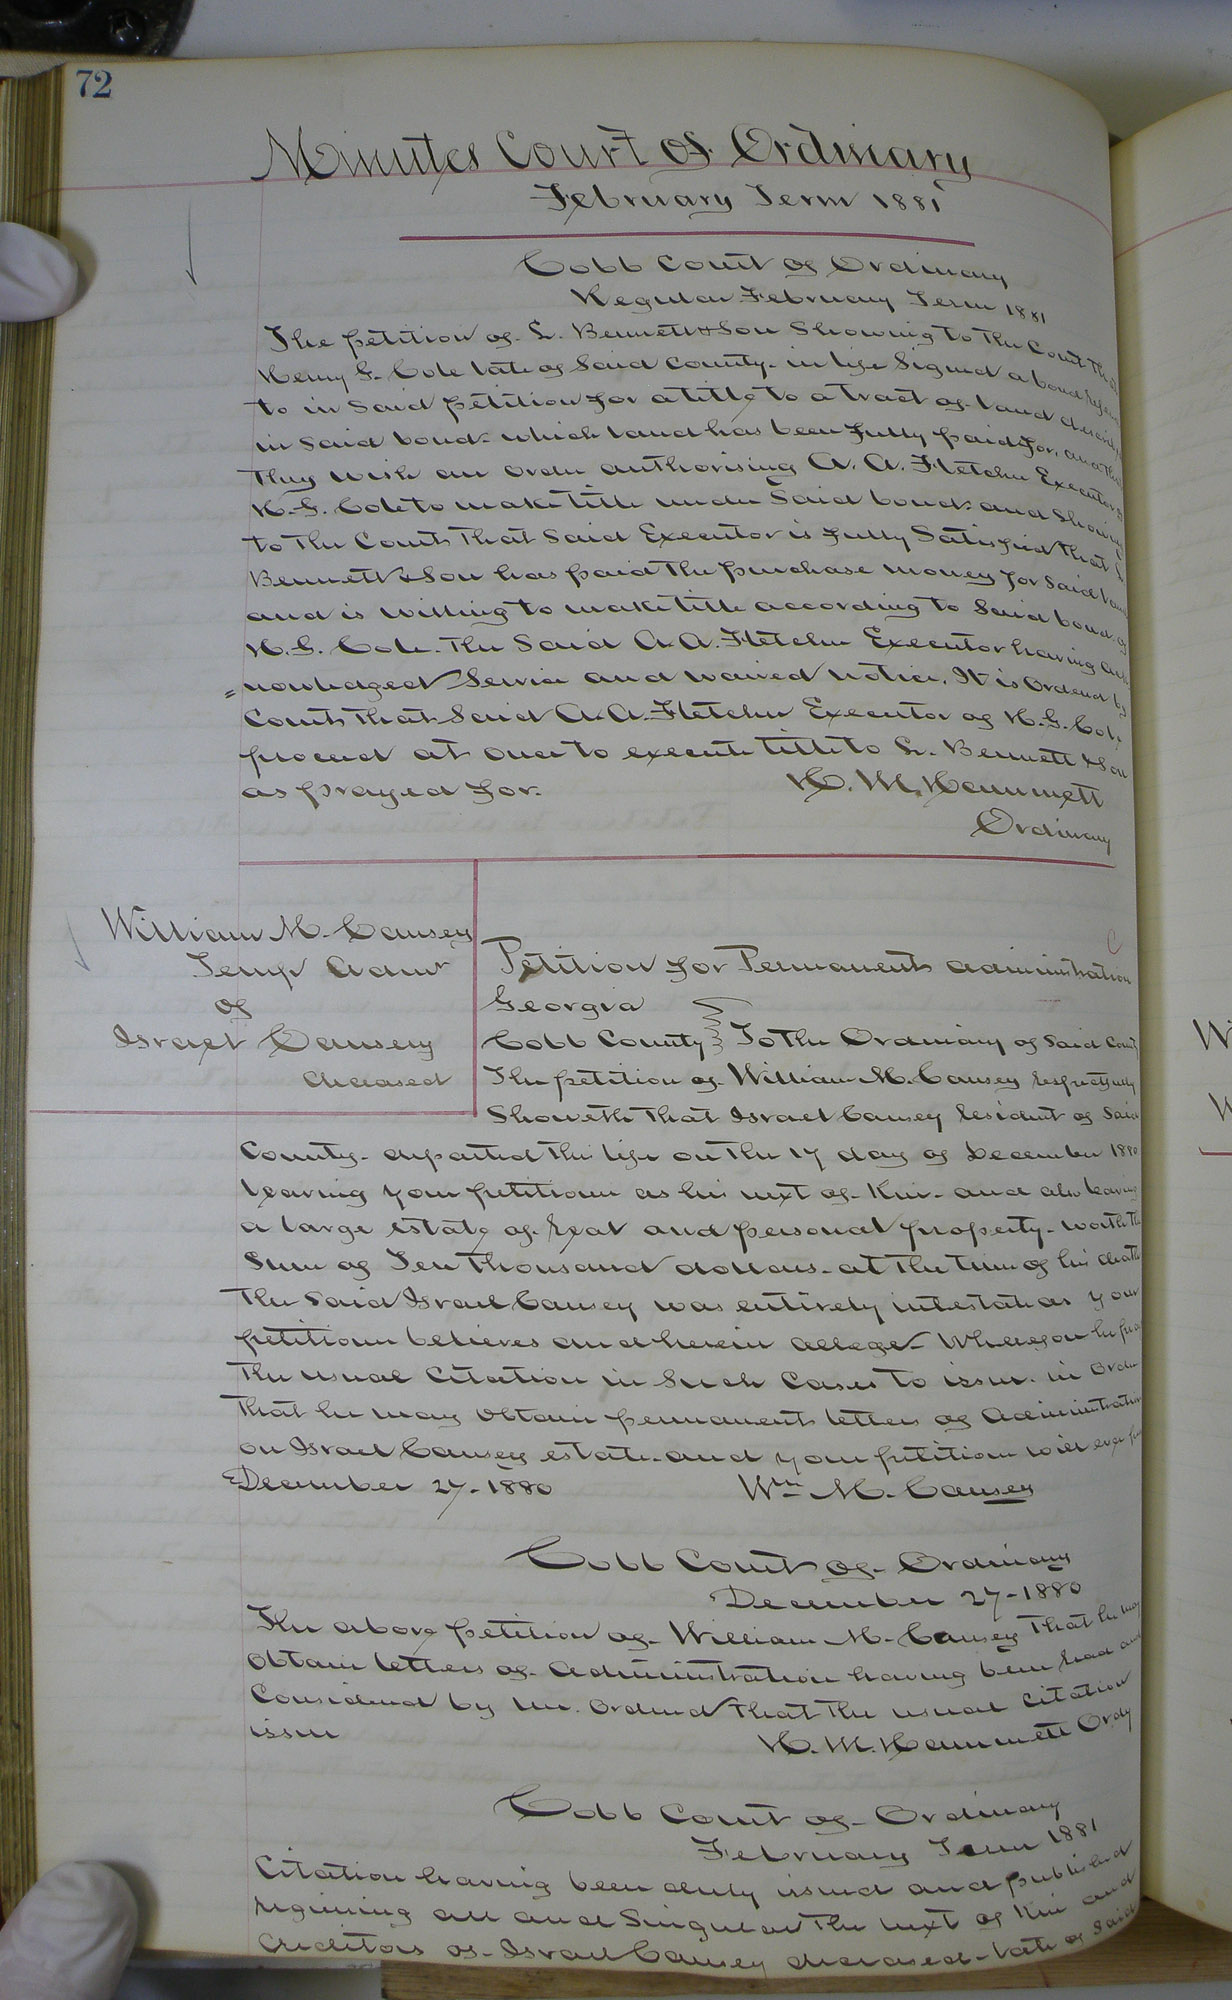 72
Minutes Court of Ordinary
February Term 1881
Cobb Court of Ordinary
Regular February Term 1881
The petition of S. Bennett & Son Showing to the Court that
Henry G. Cole late of Said County. in life Signed a bond
to in Said petition for a title to a tract of land
in Said bond. which land has been fully paid for,
They wish an order authorising A. A. Fletcher Executor
H. G. Cole to make title under Said bond. and Showing
to the Court that Said Executor is fully Satisfied that
Bennett & Son has paid the purchase money for Said land
and is willing to make title according to Said bond of
H. G. Cole. The Said A. A. Fletcher Executor having ack
=nowledged Service and waived notice. It is Ordered by
Court that Said A. A. Fletcher Executor of H. G. Cole
proceed at once to execute title to S. Bennett & Son
as prayed for. H. M. Hammett
Ordinary
William M. Causey
Temp Admr
of
Israel Causey
deceased
Petition for Permanent administration
Georgia
Cobb County } To the Ordinary of Said County
The petition of William M. Causey respectfully
Showeth that Israel Causey resident of Said
County. departed this life on the 17 day of December 1880
leaving your petitioner as his next of Kin. and also leaving
a large estate of real and personal property. worth the
Sum of Ten thousand dollars. at the time of his death
The Said Israel Causey was entirely intestate as your
petitioner believes and herein allege. Whereupon he
the usual Citation in Such Cases to issue. in order
that he may obtain permanent letters of Administration
on Israel Causey estate. and your petitioner will ever
December 27 - 1880 Wm M. Causey
Cobb Court of Ordinary
December 27 - 1880
The above petition of William M. Causey that he may
obtain letters of administration having been read and
Considered by me. Ordered that the usual Citation
issue H. M. Hammett Ordy
Cobb Court of Ordinary
February Term 1881
Citation having been duly issued and published
requiring all and Singular the next of Kin and
Creditors of Israel Causey deceased late of Said